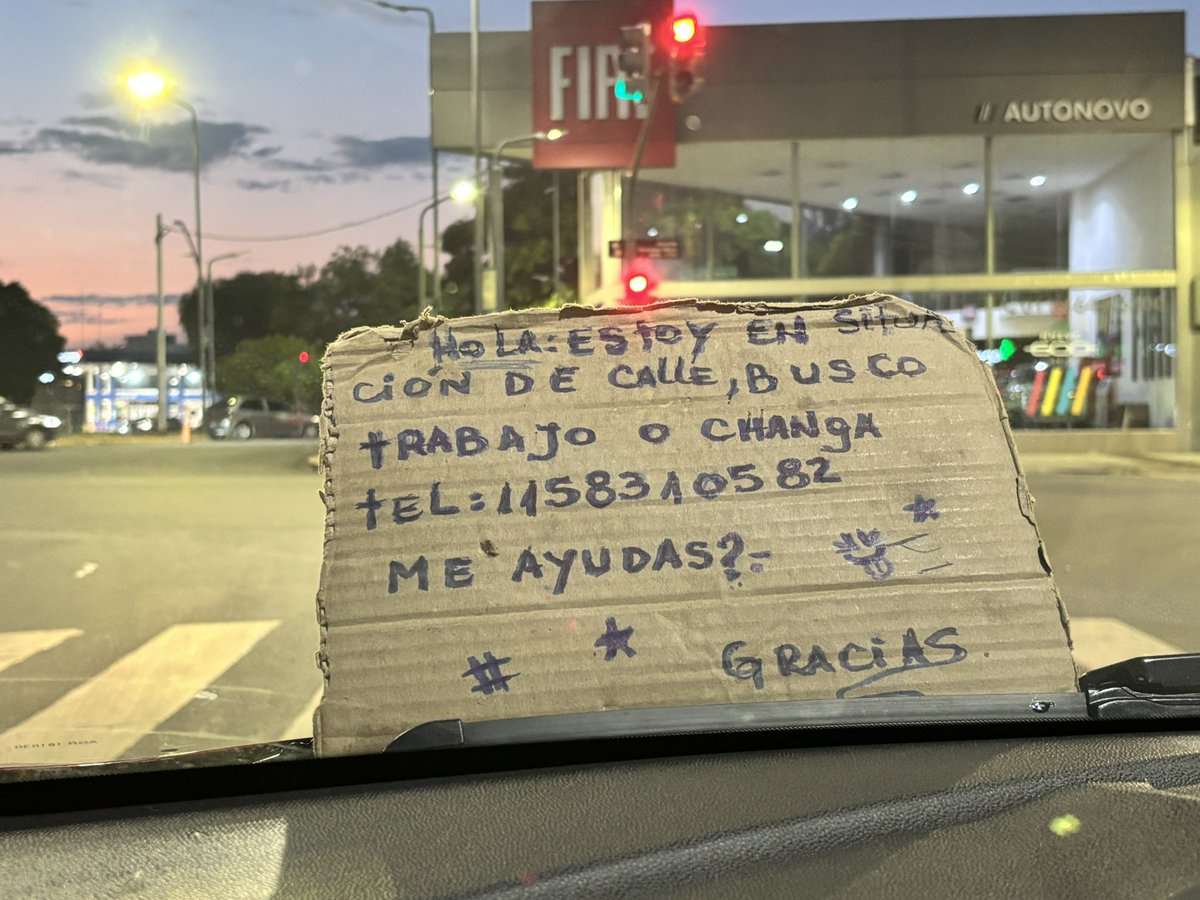 FIAT
// AUTONOVO
HOLA: ESTOY EN SITUA
CIÓN DE CALLE, BUSCO
TRABAJO O CHANGA
TEL: 1158310582
ME AYUDAS?-
*
# *
GRACIAS.